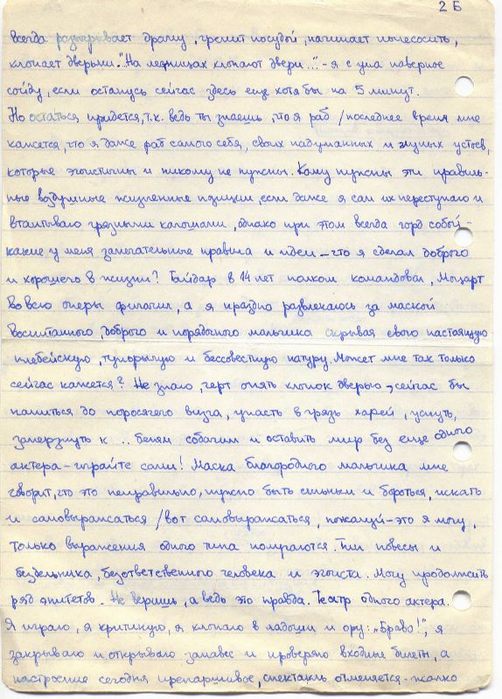 2 Б
всегда разыгрывает драму, гремит посудой, начинает пылесосить,
хлопает дверьми. "На лестницах хлопают двери..." - я с ума наверное
сойду, если останусь сейчас здесь еще хотя бы на 5 минут.
Но остаться придется, т.к. ведь ты знаешь, что я раб /последнее время мне
кажется, что я даже раб самого себя, своих надуманных и глупых устоев,
которые эгоистичны и никому не нужны. Кому нужны эти правиль-
ные воздушные жизненные позиции, если даже я сам их переступаю и
втаптываю грязными калошами, однако при этом всегда горд собой -
какие у меня замечательные правила и идеи - что я сделал доброго
и хорошего в жизни? Гайдар в 14 лет полком командовал, Моцарт
во всю оперы фигачил, а я праздно развлекаюсь за маской
воспитанного, доброго и порядочного мальчика скрывая свою настоящую
плебейскую, тупорылую и бессовестную натуру. Может мне так только
сейчас кажется? Не знаю, черт опять хлопок дверью, сейчас бы
напиться до поросячего визга, упасть в грязь харей, уснуть,
замерзнуть к .. беням собачим и оставить мир без еще одного
актера - играйте сами! Маска благородного мальчика мне
говорит, что это неправильно, нужно быть сильным и бороться, искать
и самовыражаться /вот самовыражаться, пожалуй - это я могу,
только выражения одного типа получаются. Тип повесы и
бездельника, безответственного человека и эгоиста. Могу продолжить
ряд эпитетов. Не веришь, а ведь это правда. Театр одного актера.
Я играю, я критикую, я хлопаю в ладоши и ору: "Браво!", я
закрываю и открываю занавес и проверяю входные билеты, а
настроение сегодня препаршивое, спектакль отменяется - жалко